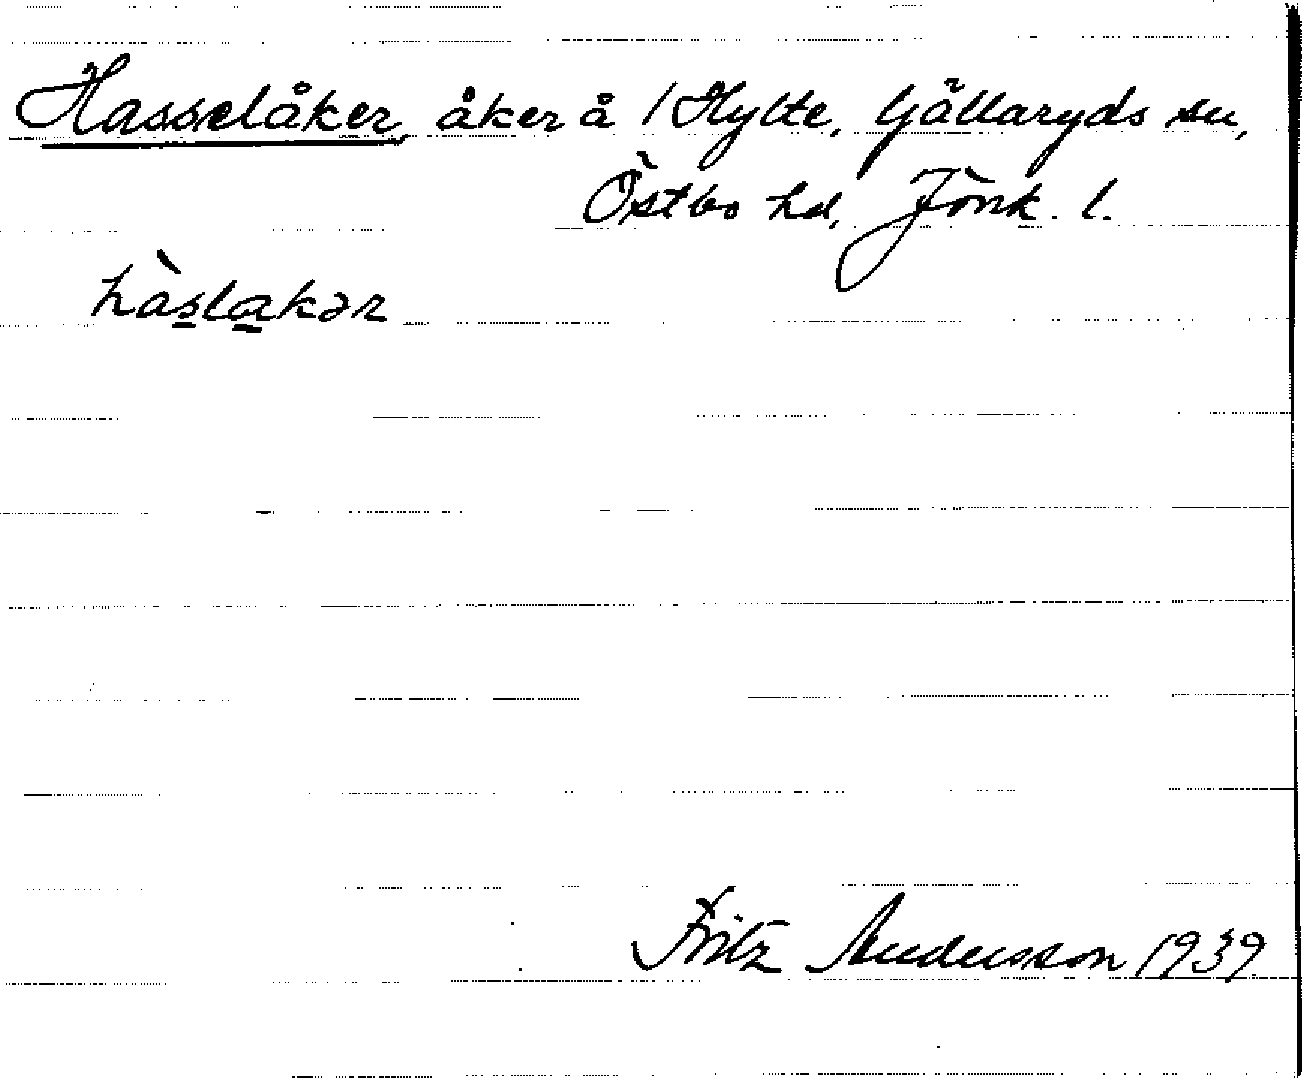 Hasselåker, åker å 1 Hylte, Gällaryds sn,
Östbo hd, Jönk. l.
hàs̲la̲kər
Fritz Andersson 1939